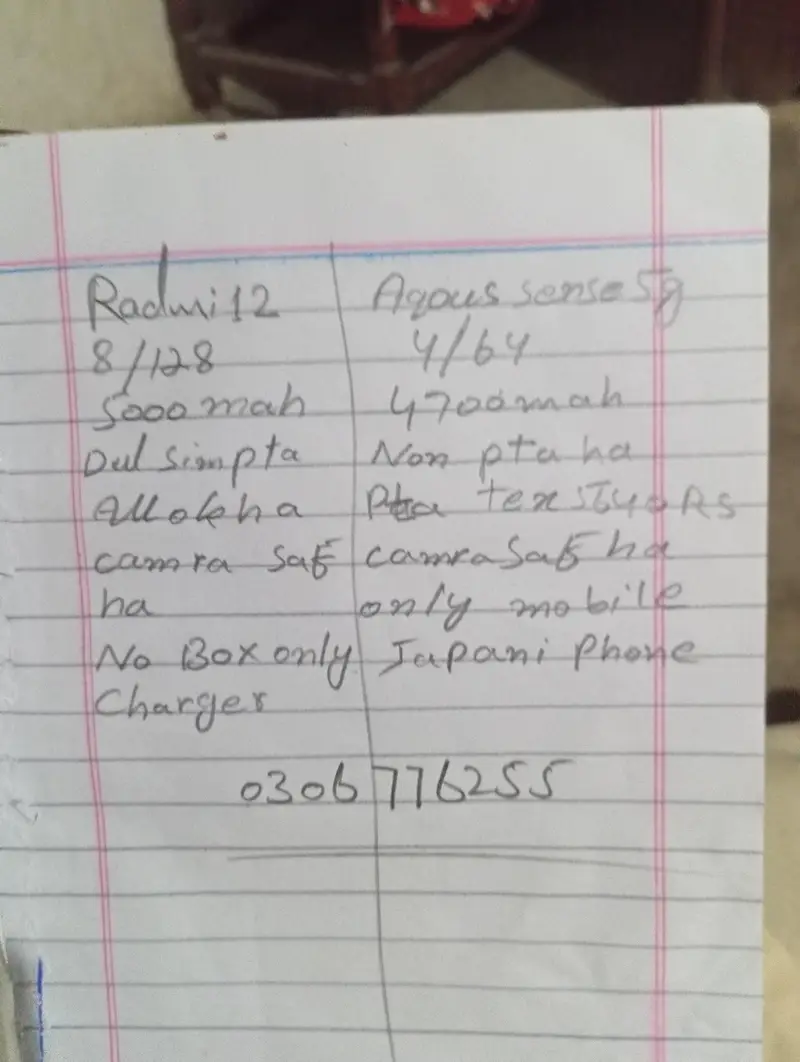 Radmi 12
8/128
5000 mah
Dul sim pta
All ok ha
camra saf
ha
No Box only
Charger
Aqous sense 5g
4/64
4700 mah
Non pta ha
Pta tex
camra saf ha
only mobile
Japani Phone
0306776255